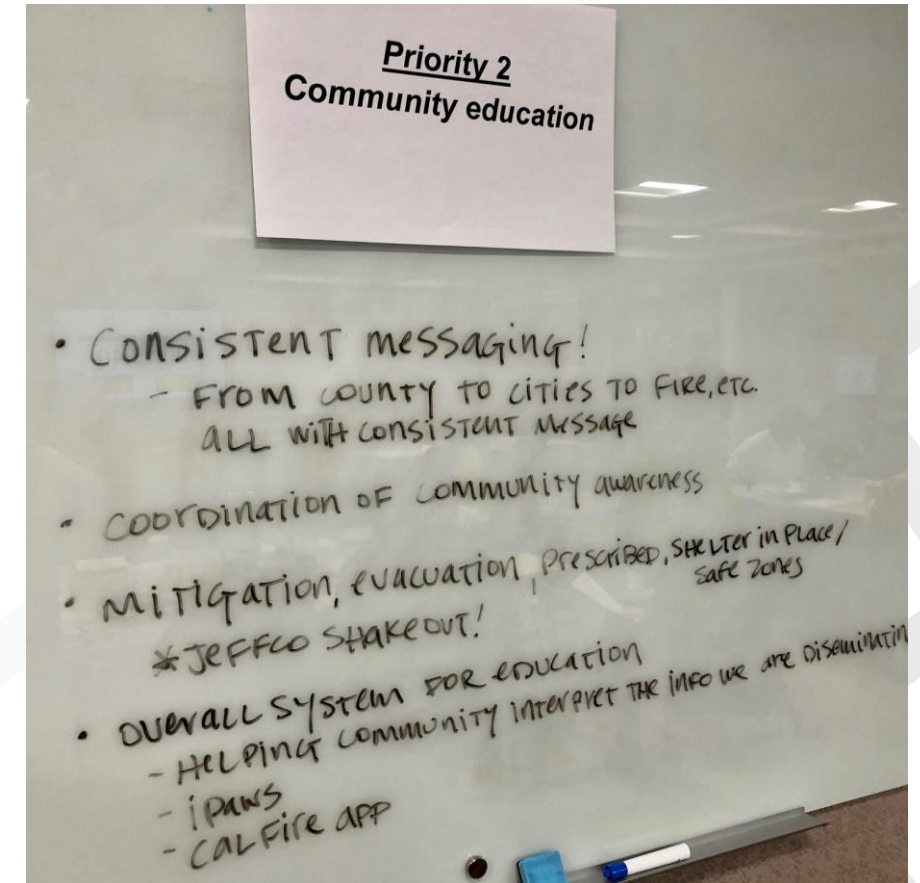 Priority 2
Community education
• Consistent messaging!
- From county to cities to Fire, etc.
all with consistent message
• Coordination of community awareness
• Mitigation, evacuation, prescribed, shelter in place/
safe zones
* Jeffco Shakeout!
• Overall system for education
- Helping community interpret the info we are diseminatin
- ipaws
- cal fire app